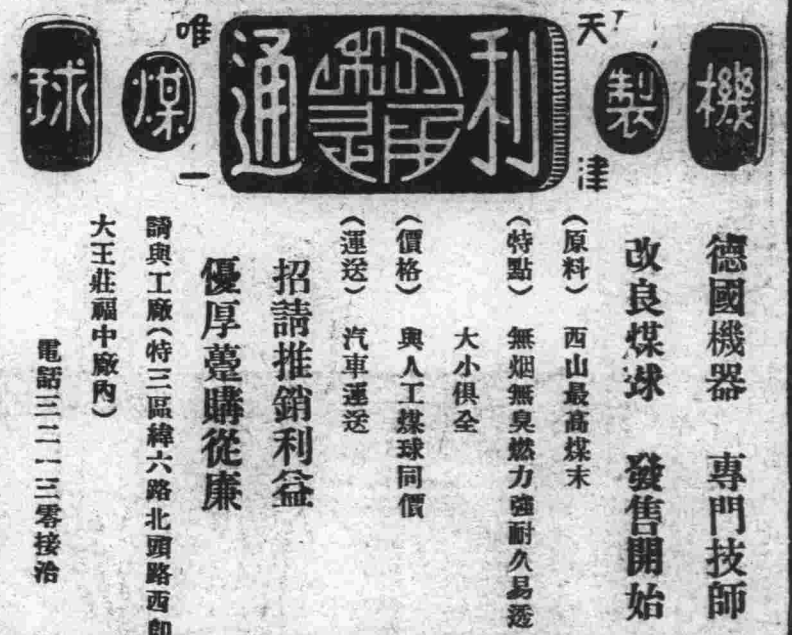 機製
天津
利通
唯一
煤球
德國機器 專門技師
改良煤球 發售開始
(原料) 西山最高煤末
(特點) 無烟無臭燃力強耐久易透
大小俱全
(價格) 與人工煤球同價
(運送) 汽車運送
招請推銷利益
優厚躉購從廉
請與工廠(特三區緯六路北頭路西即
大王莊福中廠內)
電話三二一三零接洽